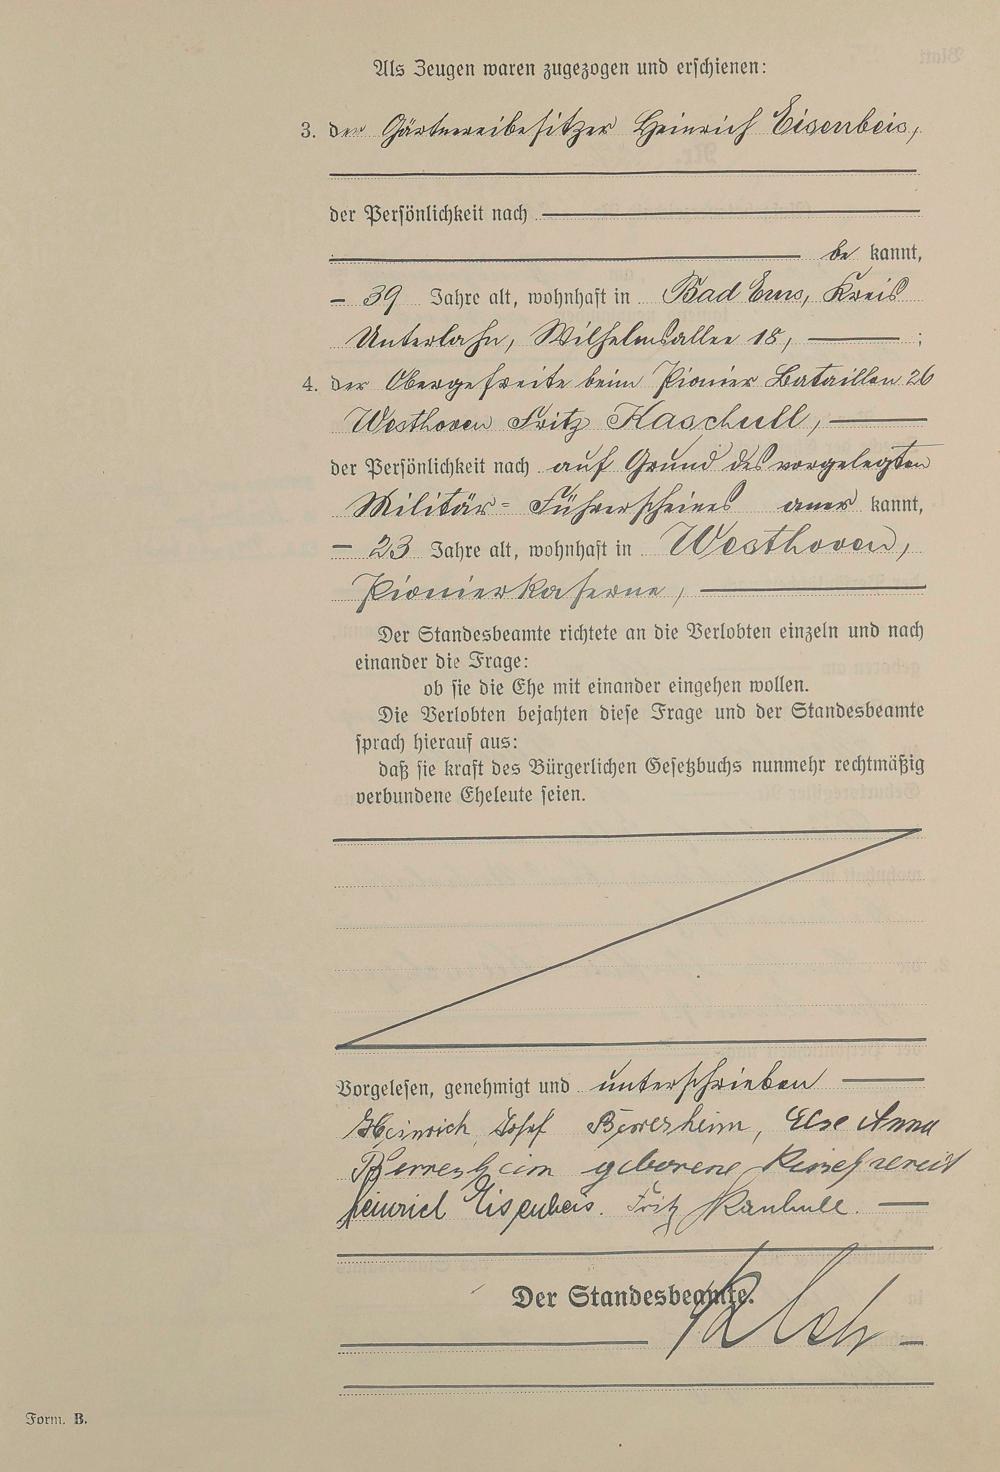 Als Zeugen waren zugezogen und erschienen:
3. der Gärtnereibesitzer Heinrich Eisenbeis,
der Persönlichkeit nach
be kannt,
39 Jahre alt, wohnhaft in Bad Ems, Kreis
Unterlahn, Wilhelmsallee 18, ;
4. der Obergefreite beim Pionier Bataillon 26
Westhoven Fritz Kaschull,
der Persönlichkeit nach auf Grund des vorgelegten
Militär-Führerscheines aner kannt,
23 Jahre alt, wohnhaft in Westhoven,
Pionierkaserne,
Der Standesbeamte richtete an die Verlobten einzeln und nach
einander die Frage:
ob sie die Ehe mit einander eingehen wollen.
Die Verlobten bejahten diese Frage und der Standesbeamte
sprach hierauf aus:
daß sie kraft des Bürgerlichen Gesetzbuchs nunmehr rechtmäßig
verbundene Eheleute seien.
Vorgelesen, genehmigt und unterschrieben
Heinrich Josef Berresheim, Else Anna
Berresheim geborene
Heinrich Eisenbeis. Fritz Kaschull.
Der Standesbeamte.
Form. B.